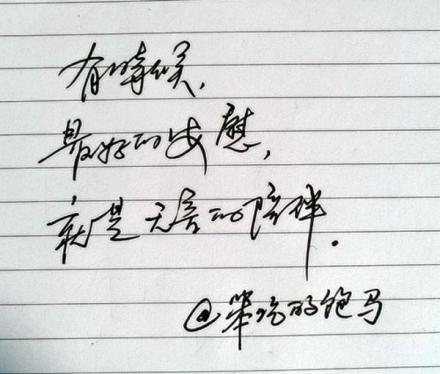 有时候,
最好的安慰,
就是无言的陪伴.
@笨拙的跑马